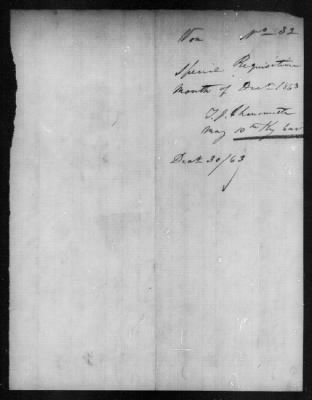 Vou No 32
Special Requisition
Month of Dec 1863
T. J. Chenoweth
Maj 10th Ky Cav
Dect 30/63